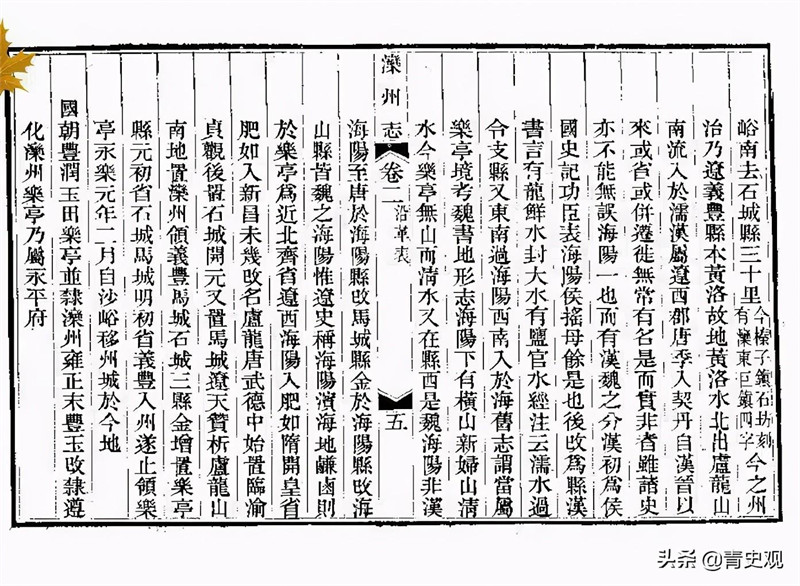 峪南去石城縣三十里今榛子鎮石坊刻有灤東巨鎮四字今之州
治乃遼義豐縣本黃洛故地黃洛水北出盧龍山
南流入於濡漢屬遼西郡唐季入契丹自漢晉以
來或省或併遷徙無常有名是而實非者雖諸史
亦不能無誤海陽一也而有漢魏之分漢初爲侯
國史記功臣表海陽侯搖母餘是也後改爲縣漢
書言有龍鮮水封大水有鹽官水經注云濡水過
令支縣又東南過海陽西南入於海舊志謂當屬
樂亭境考魏書地形志海陽下有橫山新婦山清
水今樂亭無山而清水又在縣西是魏海陽非漢
灤州志 卷二 沿革表 五
海陽至唐於海陽縣改馬城縣金於海陽縣改海
山縣皆魏之海陽惟遼史稱海陽濱海地鹻鹵則
於樂亭爲近北齊省遼西海陽入肥如隋開皇省
肥如入新昌未幾改名盧龍唐武德中始置臨渝
貞觀後置石城開元又置馬城遼天贊析盧龍山
南地置灤州領義豐馬城石城三縣金增置樂亭
縣元初省石城馬城明初省義豐入州遂止領樂
亭永樂元年二月自沙峪移州城於今地
國朝豐潤玉田樂亭並隸灤州雍正末豐玉改隸遵
化灤州樂亭乃屬永平府
头条 @青史观